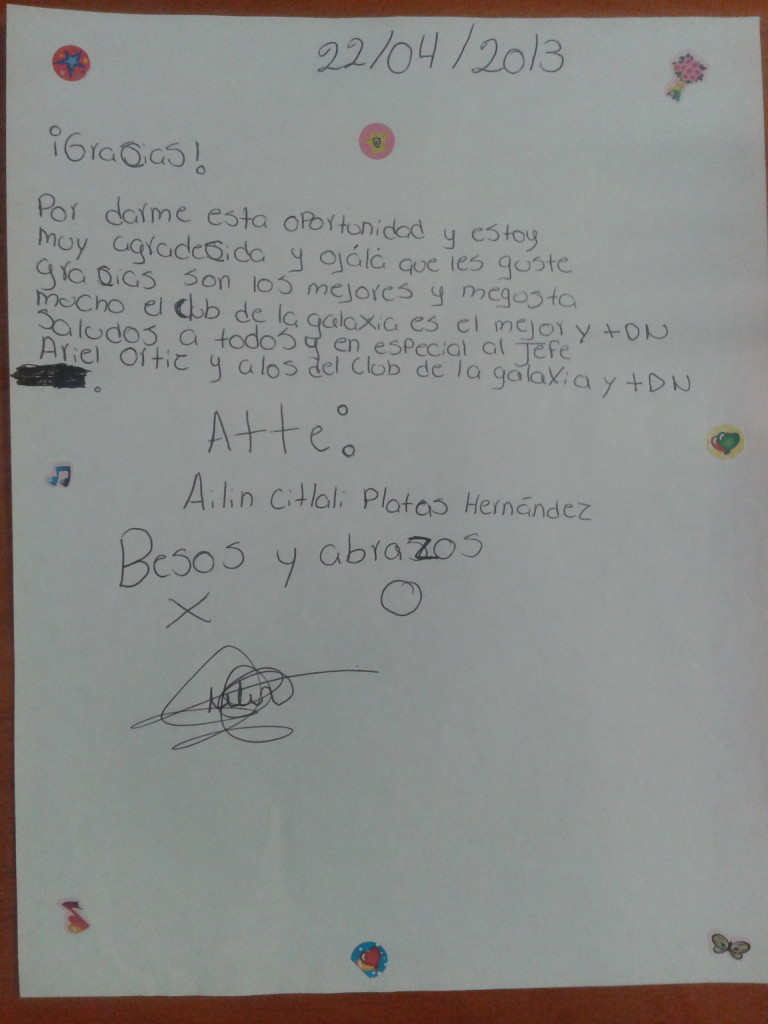 22/04/2013
¡Grasias!
Por darme esta oportunidad y estoy
muy agradesida y ojálá que les guste
grasias son los mejores y megusta
mucho el club de la galaxia es el mejor y +DN
Saludos a todos y en especial al jefe
Ariel Ortiz y alos del club de la galaxia y +DN
.
Atte:
Ailin Citlali Platas Hernández
Besos y abrazos
X O